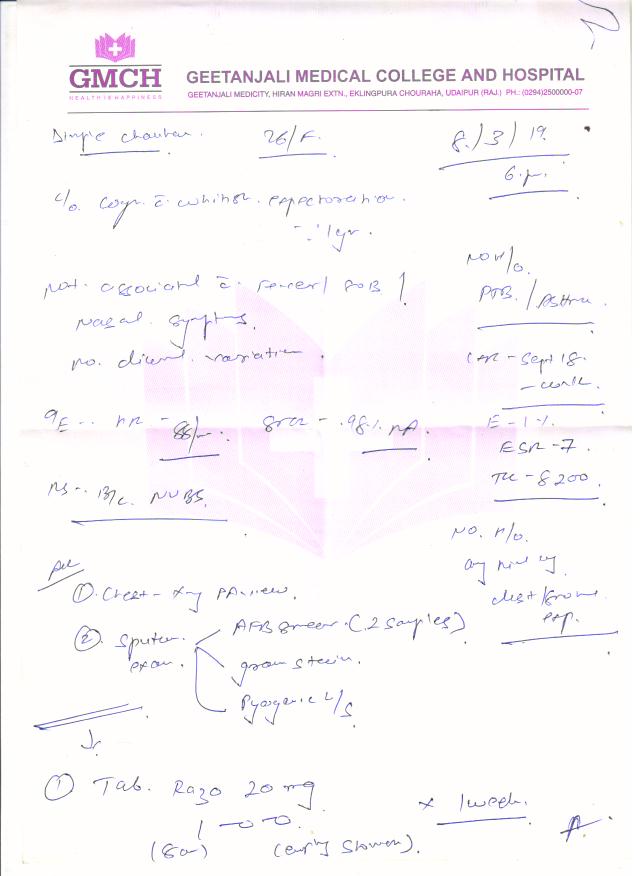 GMCH
HEALTH IS HAPPINESS
GEETANJALI MEDICAL COLLEGE AND HOSPITAL
GEETANJALI MEDICITY, HIRAN MAGRI EXTN., EKLINGPURA CHOURAHA, UDAIPUR (RAJ.) PH.: (0294)2500000-07
26/F.
8/3/19.
c/o. cough c̄ whitish expectoration.
1yr.
Not associated c̄ fever/ SOB /
nasal symptoms.
no. diurnal variation.
NO H/o.
PTB. / Asthma
CXR - Sept 18.
O/E - HR - 88/-
SPO2 - 98% RA.
E - 1%
ESR - 7
TLC - 8200
RS - B/L NVBS.
NO. H/o.
dust/
exp.
Adv
① Chest - Xray PA view.
② Sputum exam.
AFB smear (2 samples)
gram stain.
Pyogenic c/s
① Tab. Razo 20 mg
1 -o -o.
(8am) (empty stomach).
x 1 week.